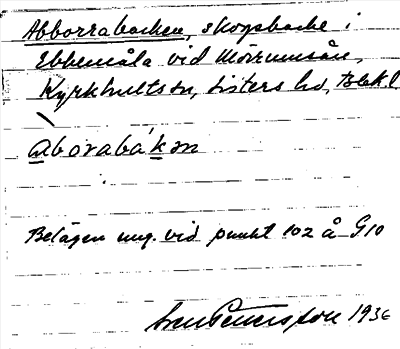 Abborrabacken, skogsbacke i
Ebbemåla vid Mörrumsån,
Kyrkhults sn, Listers hd, Blekl
aborabákən
Belägen ung. vid punkt 102 å G10
Sven Petersson 1936